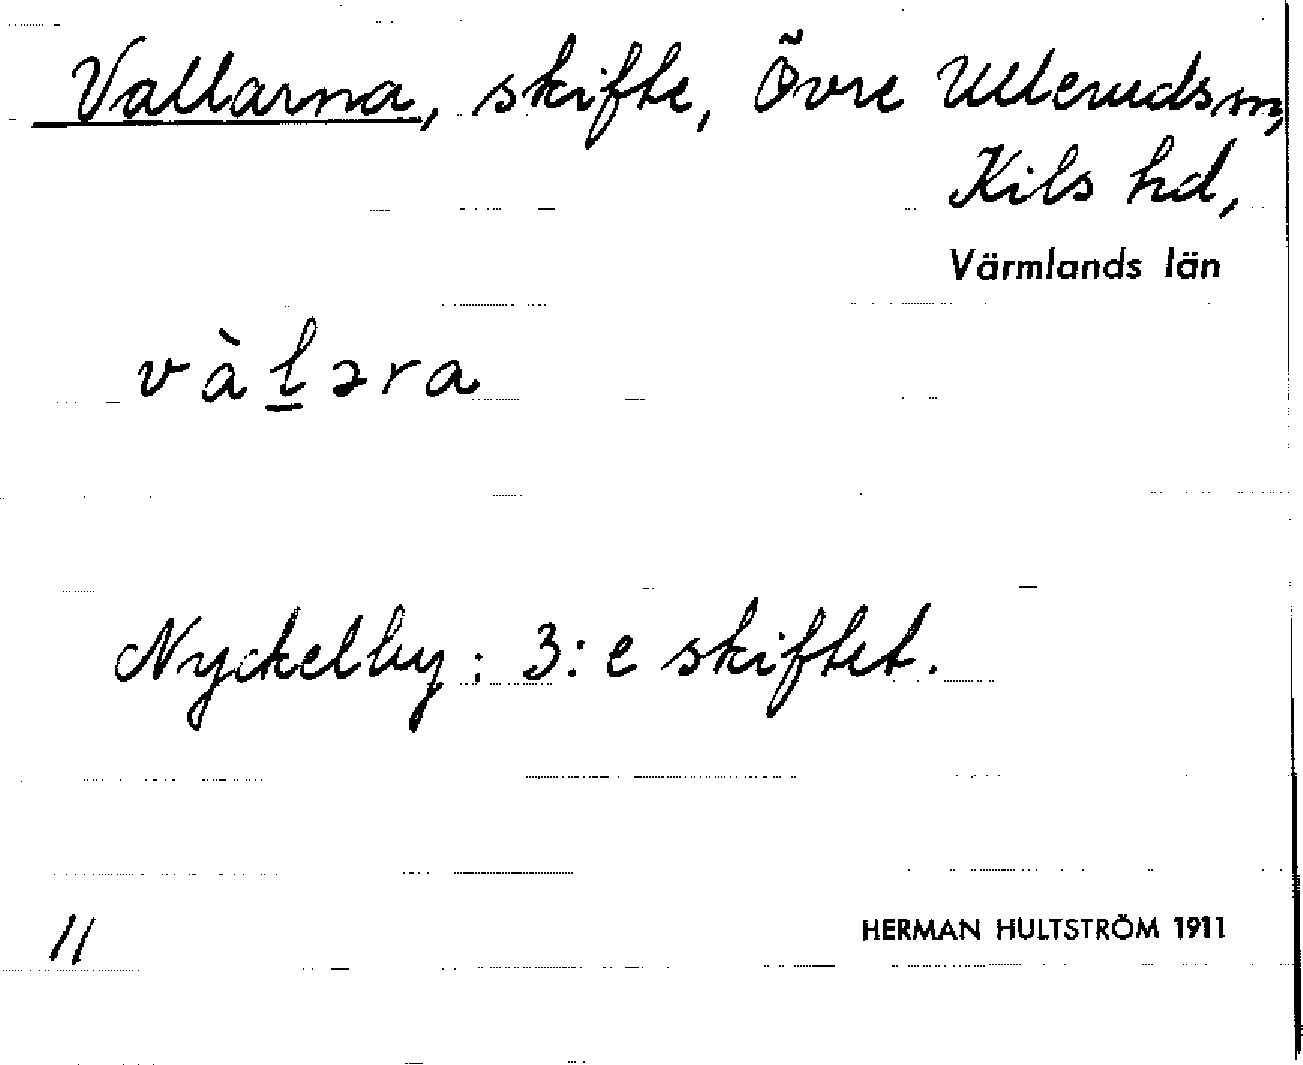 Vallarna, skifte, Övre Ulleruds sn,
Kils hd,
Värmlands län
vàl̲əra
Nyckelby: 3:e skiftet.
11
HERMAN HULTSTRÖM 1911